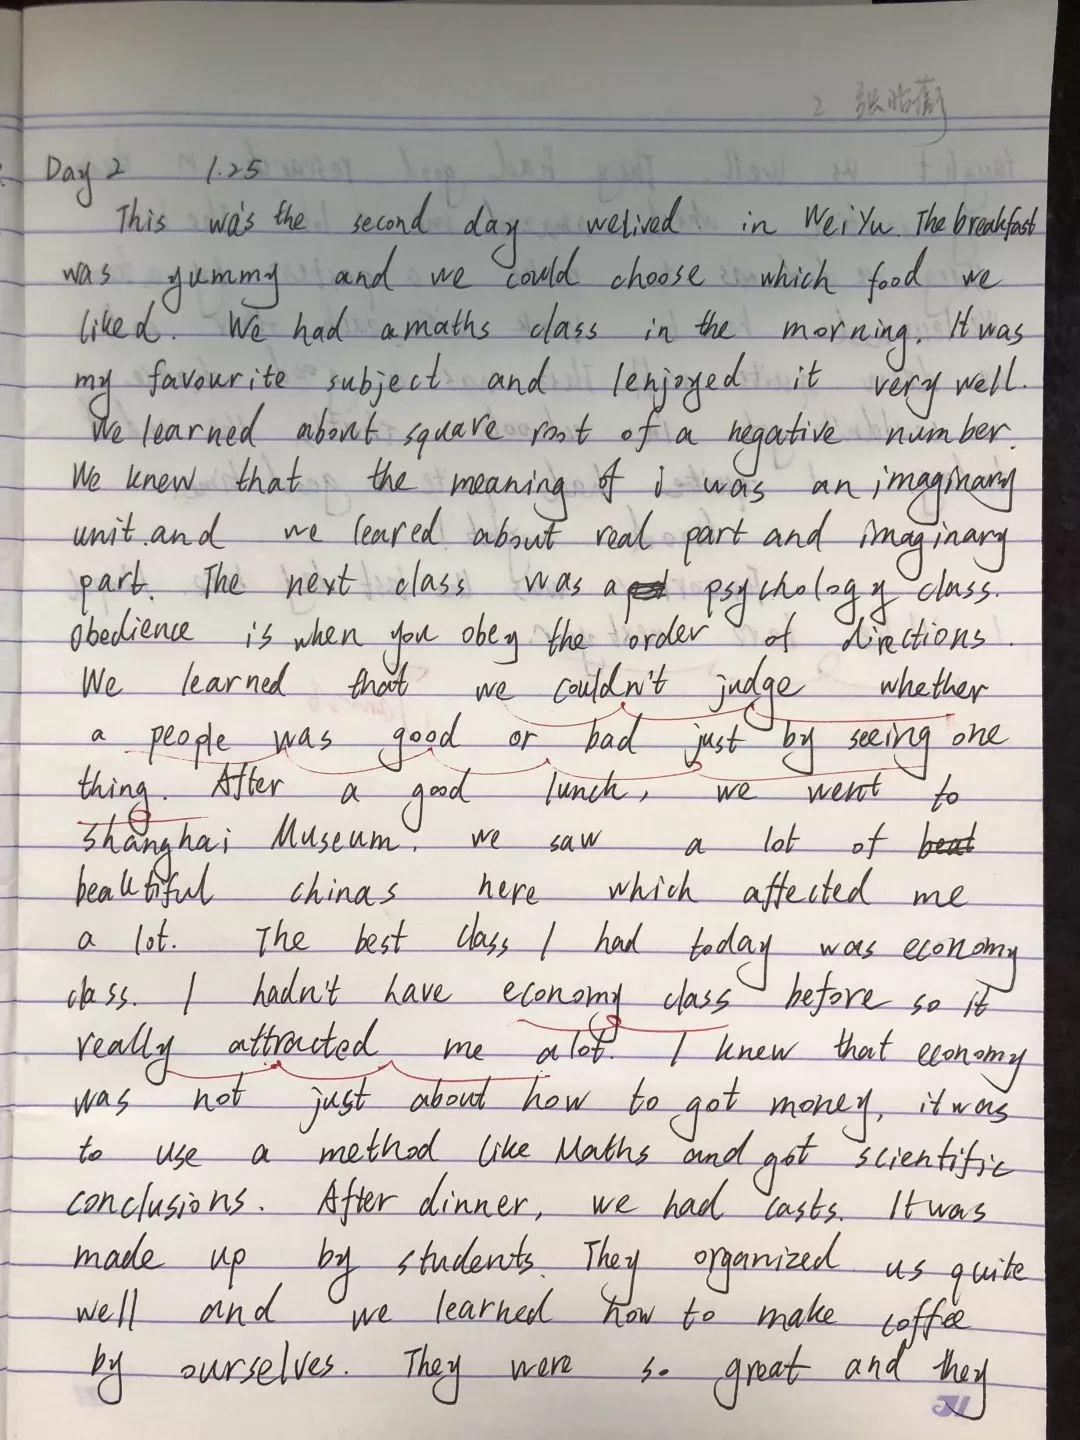 2 张
Day 2 1.25
This was the second day we lived in WeiYu. The breakfast
was yummy and we could choose which food we
liked. We had a maths class in the morning. It was
my favourite subject and I enjoyed it very well.
We learned about square root of a negative number.
We knew that the meaning of i was an imaginary
unit.and we leared about real part and imaginary
part. The next class was a psychology class.
Obedience is when you obey the order of directions.
We learned that we couldn't judge whether
a people was good or bad just by seeing one
thing. After a good lunch, we went to
Shanghai Museum. we saw a lot of beat
beautiful chinas here which affected me
a lot. The best class I had today was economy
class. I hadn't have economy class before so it
really attracted me a lot. I knew that economy
was not just about how to got money, it was
to use a method like Maths and got scientific
conclusions. After dinner, we had casts. It was
made up by students. They organized us quite
well and we learned how to make coffee
by ourselves. They were so great and they